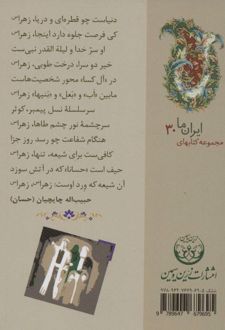 دنیاست چو قطره‌ای و دریا، زهراس
کی فرصت جلوه دارد اینجا، زهراس
او سرّ خدا و لیلة القدر نبی‌ست
خیر دو سرا، درخت طوبی، زهراس
در «آل کسا» محور شخصیت‌هاست
مابین «أب» و «بعل» و «بنیها» زهراس
سرسلسلهٔ نسل پیمبر، کوثر
سرچشمهٔ نور چشم طاها، زهراس
هنگام شفاعت چو رسد روز جزا
کافی‌ست برای شیعه، تنها، زهراس
حیف است «حسانا» که در آتش سوزد
آن شیعه که ورد اوست: زهراس، زهراس
حبیب‌اله چایچیان (حسان)
ایران ما ۳۰
مجموعه کتابهای
انتشارات زرین و سیمین
9 789647 679695